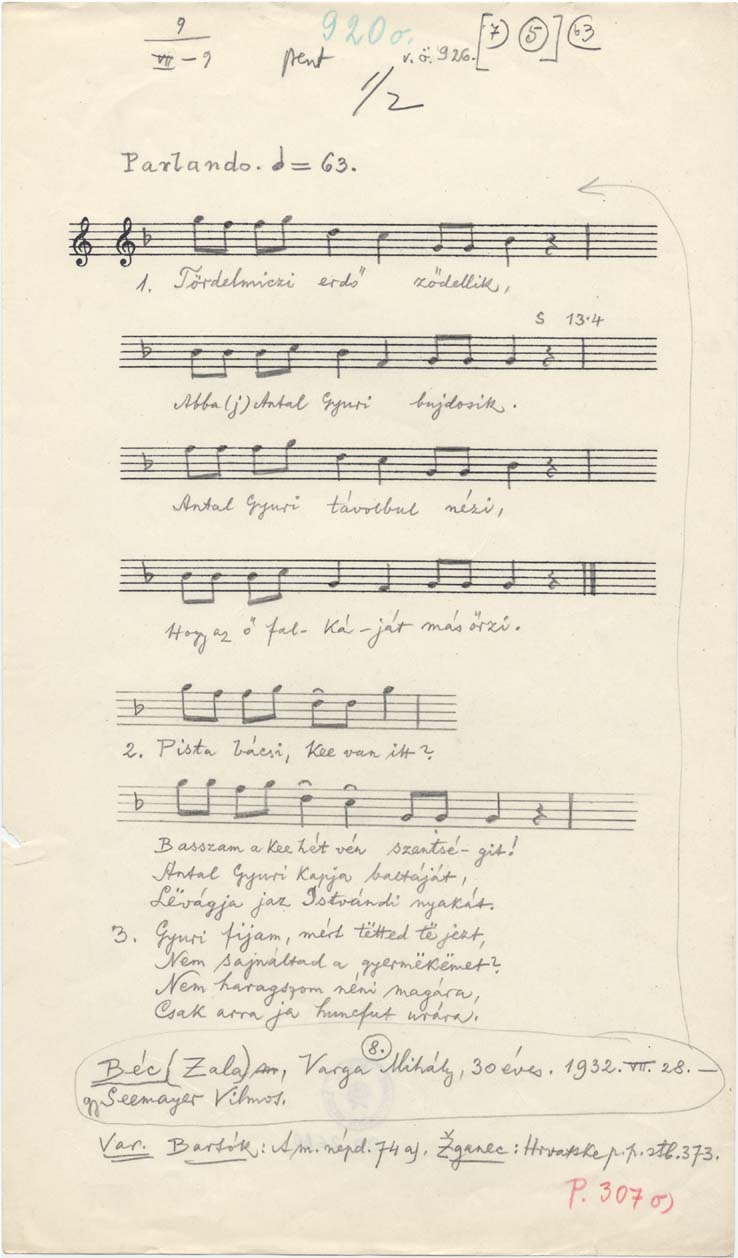 9
VII - 9
920o.
pent
v.ö. 926. [7) 5] 63
1/2
Parlando. = 63.
1. Tördelmiczi erdő ződellik,
S 13·4
Abba (j) Antal Gyuri bujdosik.
Antal Gyuri távolbul nézi,
Hogy az ő fal- ká - ját más őrzi.
2. Pista bácsi, kee van itt?
Basszam a kee hét vén szentsé- git!
Antal Gyuri kapja baltáját,
Lëvágja jaz Istvándi nyakát.
3. Gyuri fijam, mért tëtted të jezt,
Nem sajnáltad a gyermëkëmet?
Nem haragszom néni magára,
Csak arra ja huncfut urára.
8.
Béc (Zala), Varga Mihály, 30 éves. 1932. VII. 28. —
gy Seemayer Vilmos.
Var. Bartók: A m. népd. 74 a). Žganec: Hrvatske p. p. 373.
P. 307 o)